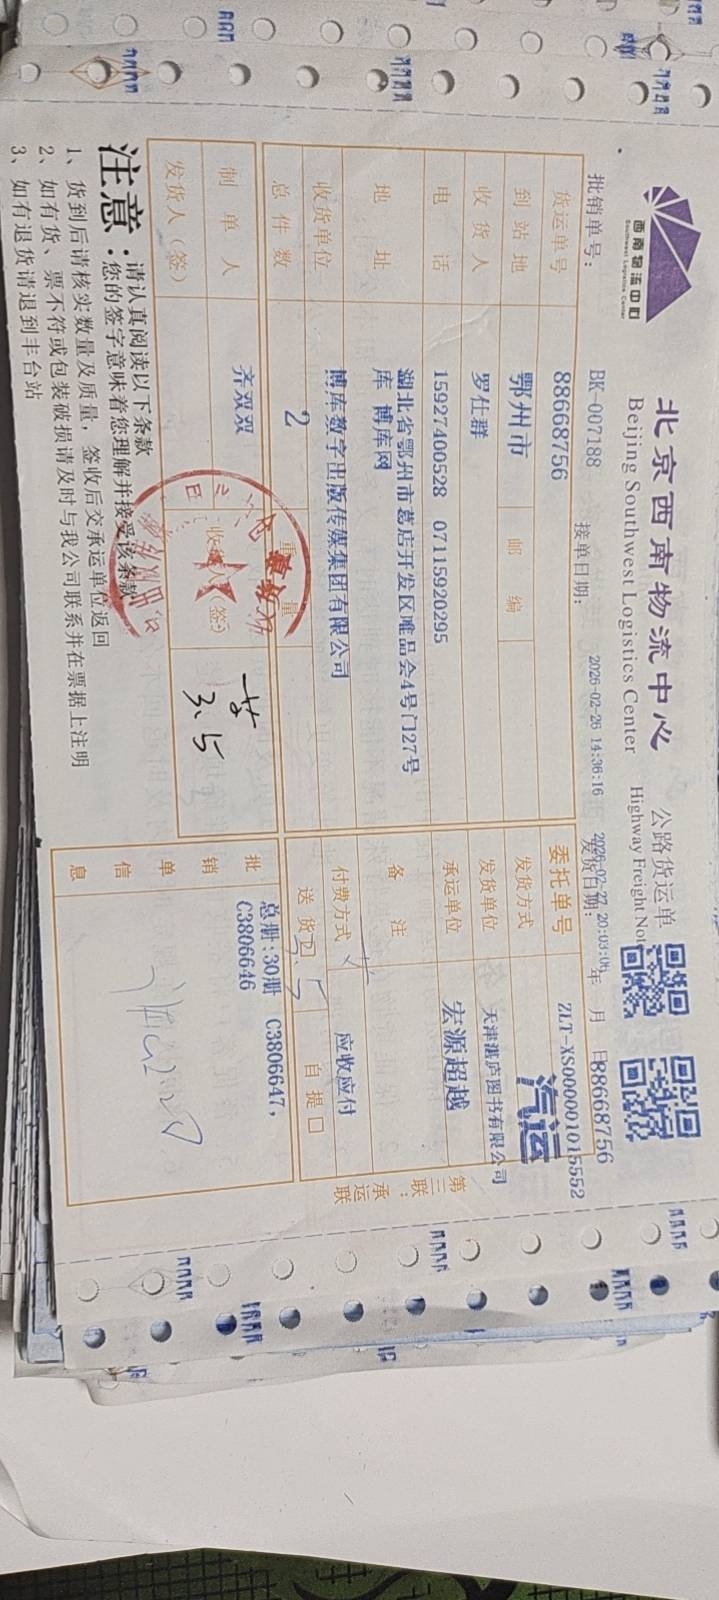 西南物流中心
Southwest Logistics Center
北京西南物流中心 公路货运单
Beijing Southwest Logistics Center Highway Freight Not
批销单号: BK-007188 接单日期: 2026-02-26 14:36:16 发货日期: 2026-02-27 20:03:06 年 月 日 88668756
货运单号 88668756 委托单号 ZLT-XS000001015552
到站地 鄂州市 邮编 发货方式 汽运
收货人 罗仕群 发货单位 天津湛庐图书有限公司
电话 15927400528 07115920295 承运单位 宏源超越
地址 湖北省鄂州市葛店开发区唯品会4号门27号
库 博库网 备注
收货单位 博库数字出版传媒集团有限公司 付费方式 应收应付
总件数 2 重量 送货 口 自提 口
制单人 齐双双 收货人(签) 3.5
发货人(签)
批销单信息 总册:30册 C3806647,
C3806646
第三联:承运联
注意: 请认真阅读以下条款
您的签字意味着您理解并接受该条款
1、货到后请核实数量及质量,签收后交承运单位返回
2、如有货、票不符或包装破损请及时与我公司联系并在票据上注明
3、如有退货请退到丰台站